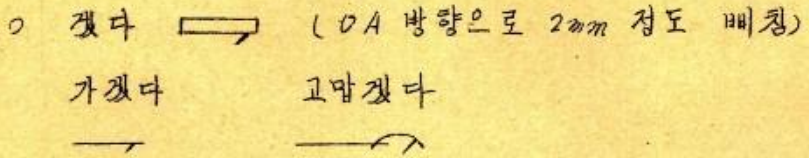 ○ 겠다 (OA 방향으로 2mm 정도 삐침)
가겠다 고맙겠다